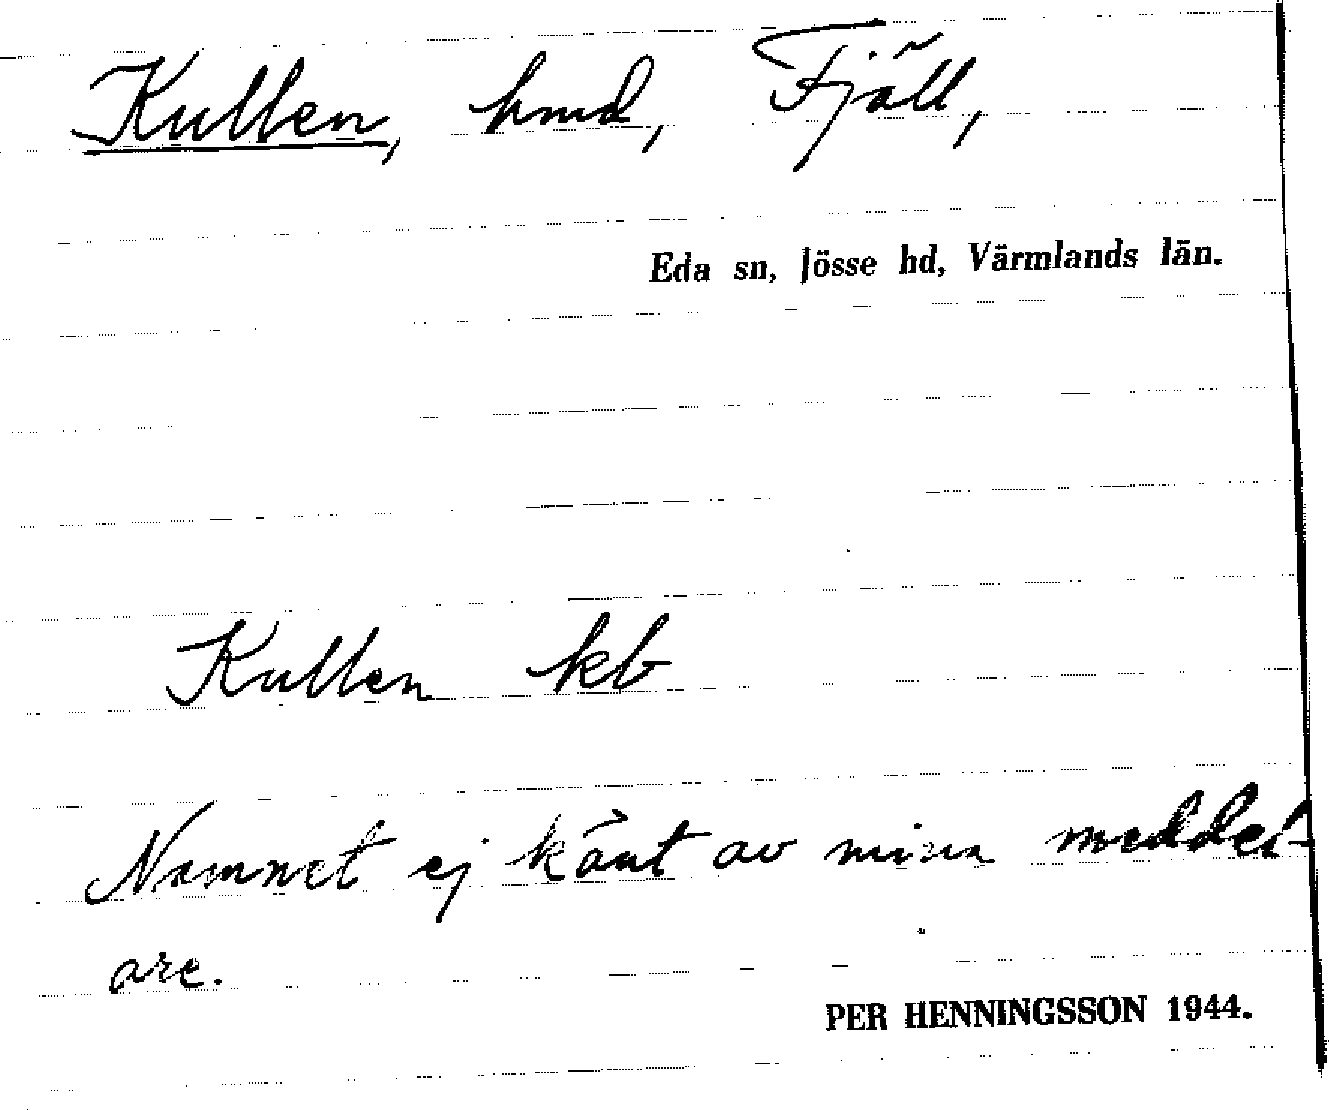 Kullen, hmd, Fjäll,
Eda sn, Jösse hd, Värmlands län.
Kullen kb
Namnet ej känt av mina meddel-
are.
PER HENNINGSSON 1944.